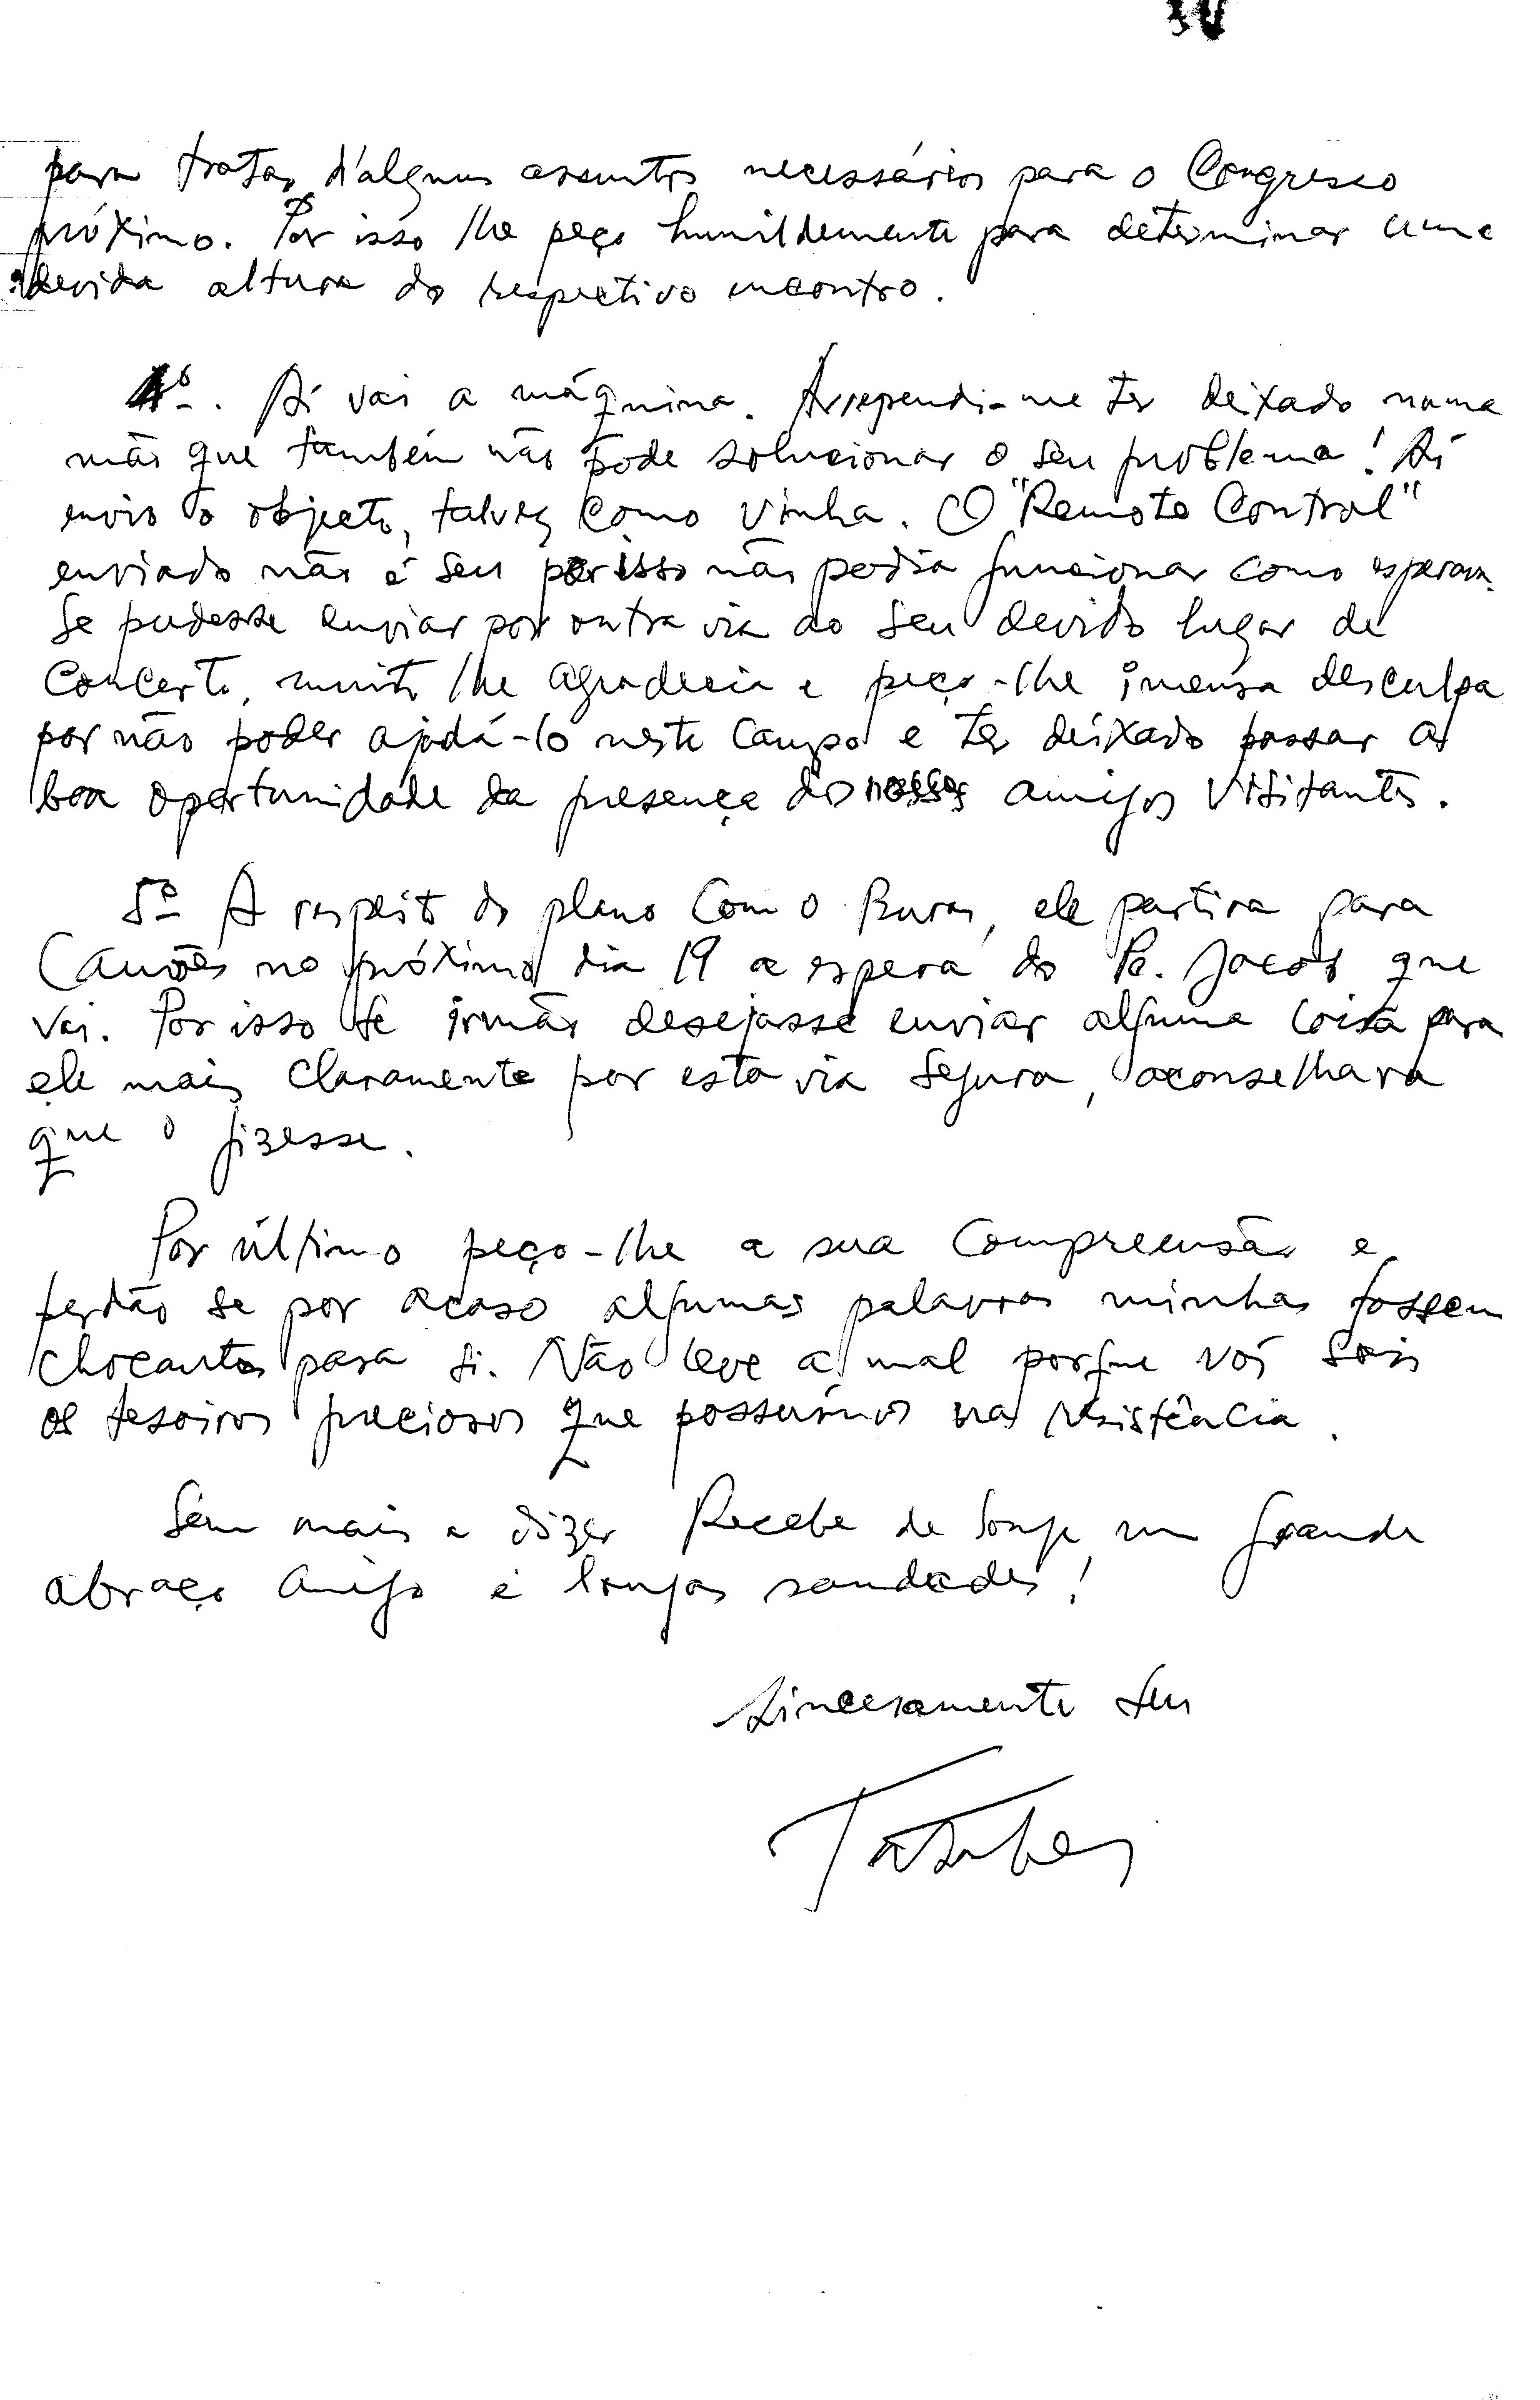 para tratar d'alguns assuntos necessários para o Congresso
próximo. Por isso lhe peço humildemente para determinar uma
devida altura do respectivo encontro.
4º. Aí vai a máquina. Arrependi-me ter deixado numa
mão que também não pode solucionar o seu problema! Aí
envio o objecto, talvez como vinha. O "Remote Control"
enviado não é seu por isso não podia funcionar como esperava.
Se pudesse enviar por outra via ao seu devido lugar de
concerto, muito lhe agradecia e peço-lhe imensa desculpa
por não poder ajudá-lo neste campo e ter deixado passar a
boa oportunidade da presença dos nossos amigos visitantes.
5º A respeito do plano com o Buras, ele partira para
Camões no próximo dia 19 a espera do Pe. Jacob que
vai. Por isso se irmão desejasse enviar alguma coisa para
ele mais claramente por esta via segura, aconselhava
que o fizesse.
Por último peço-lhe a sua compreensão e
perdão se por acaso algumas palavras minhas fossem
chocantes para si. Não leve a mal porque vós sois
os tesoiros preciosos que possuímos na resistência.
Sem mais a dizer Recebe de longe um grande
abraço amigo e longas saudades!
Sinceramente seu